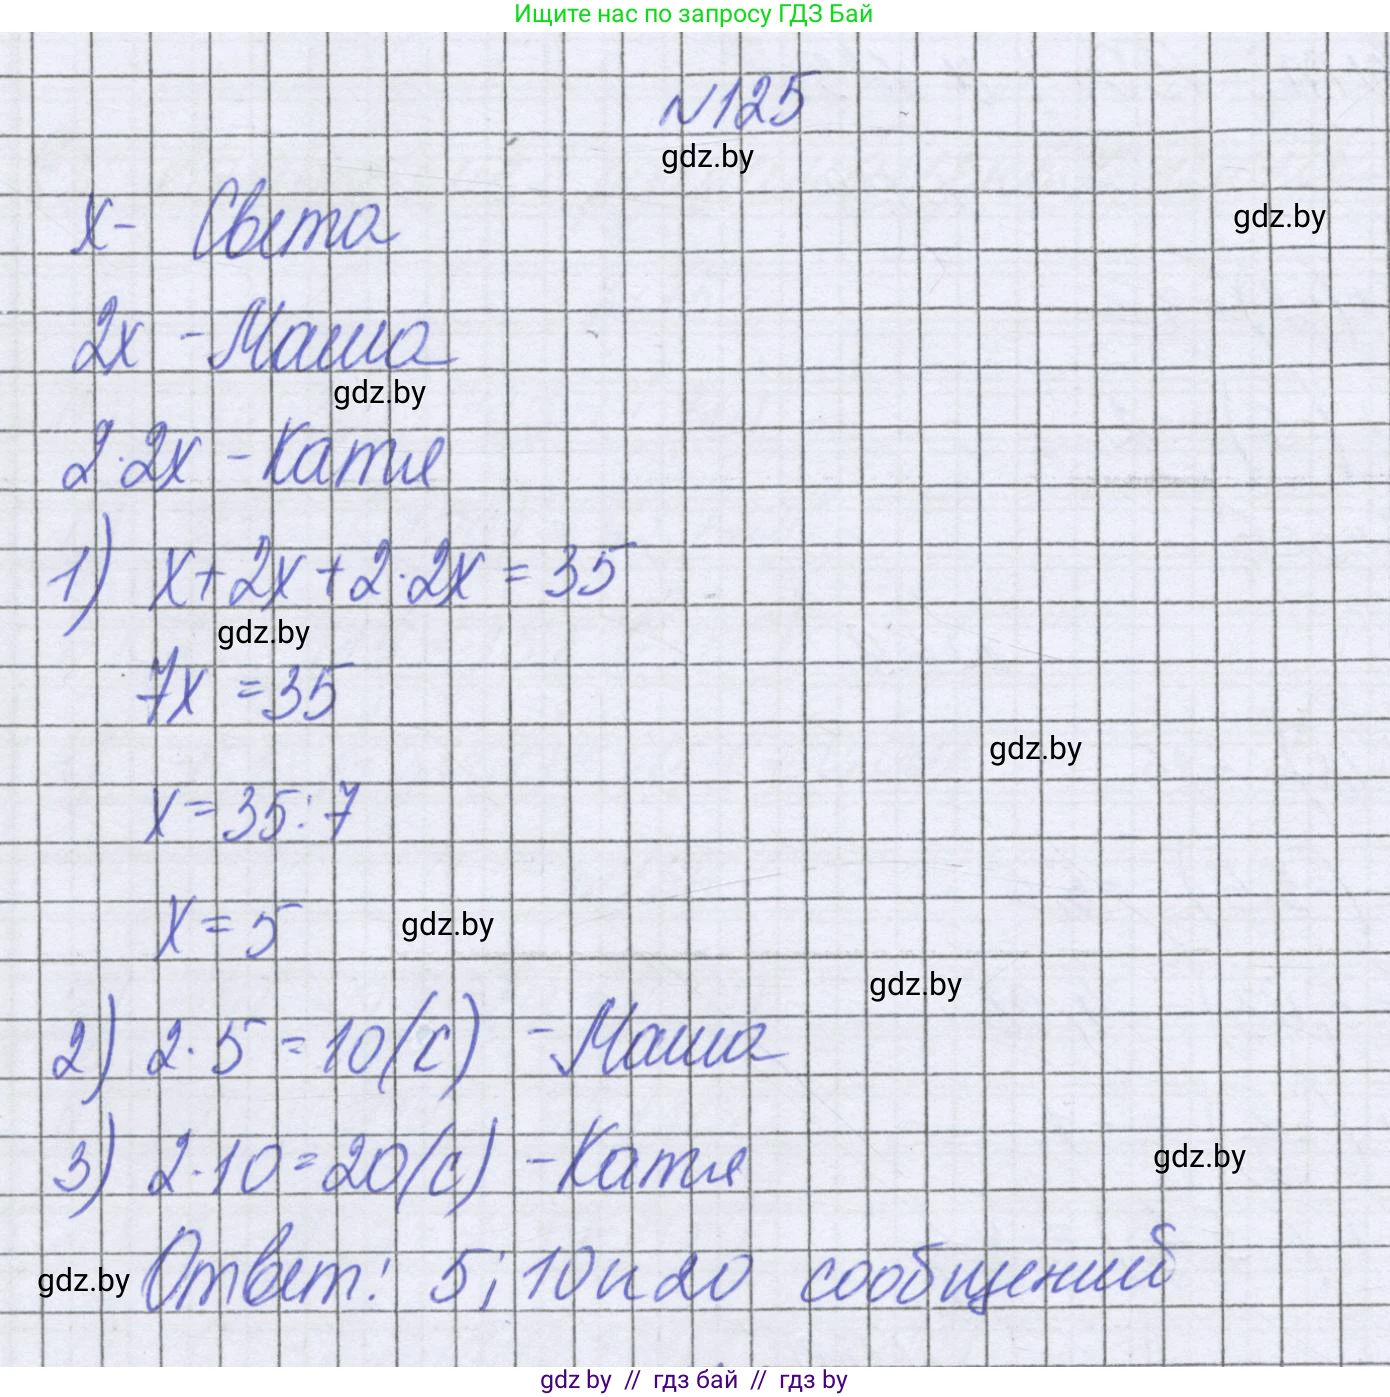 Ищите нас по запросу ГДЗ Бай
№125
gdz.by
x - Света
gdz.by
2x - Маша
gdz.by
2·2x - Катя
1) x+2x+2·2x=35
gdz.by
7x=35
gdz.by
x=35:7
x=5
gdz.by
gdz.by
2) 2·5=10(с) - Маша
3) 2·10=20(с) - Катя
gdz.by
gdz.by
Ответ: 5; 10 и 20 сообщений
gdz by // гдз бай // гдз by